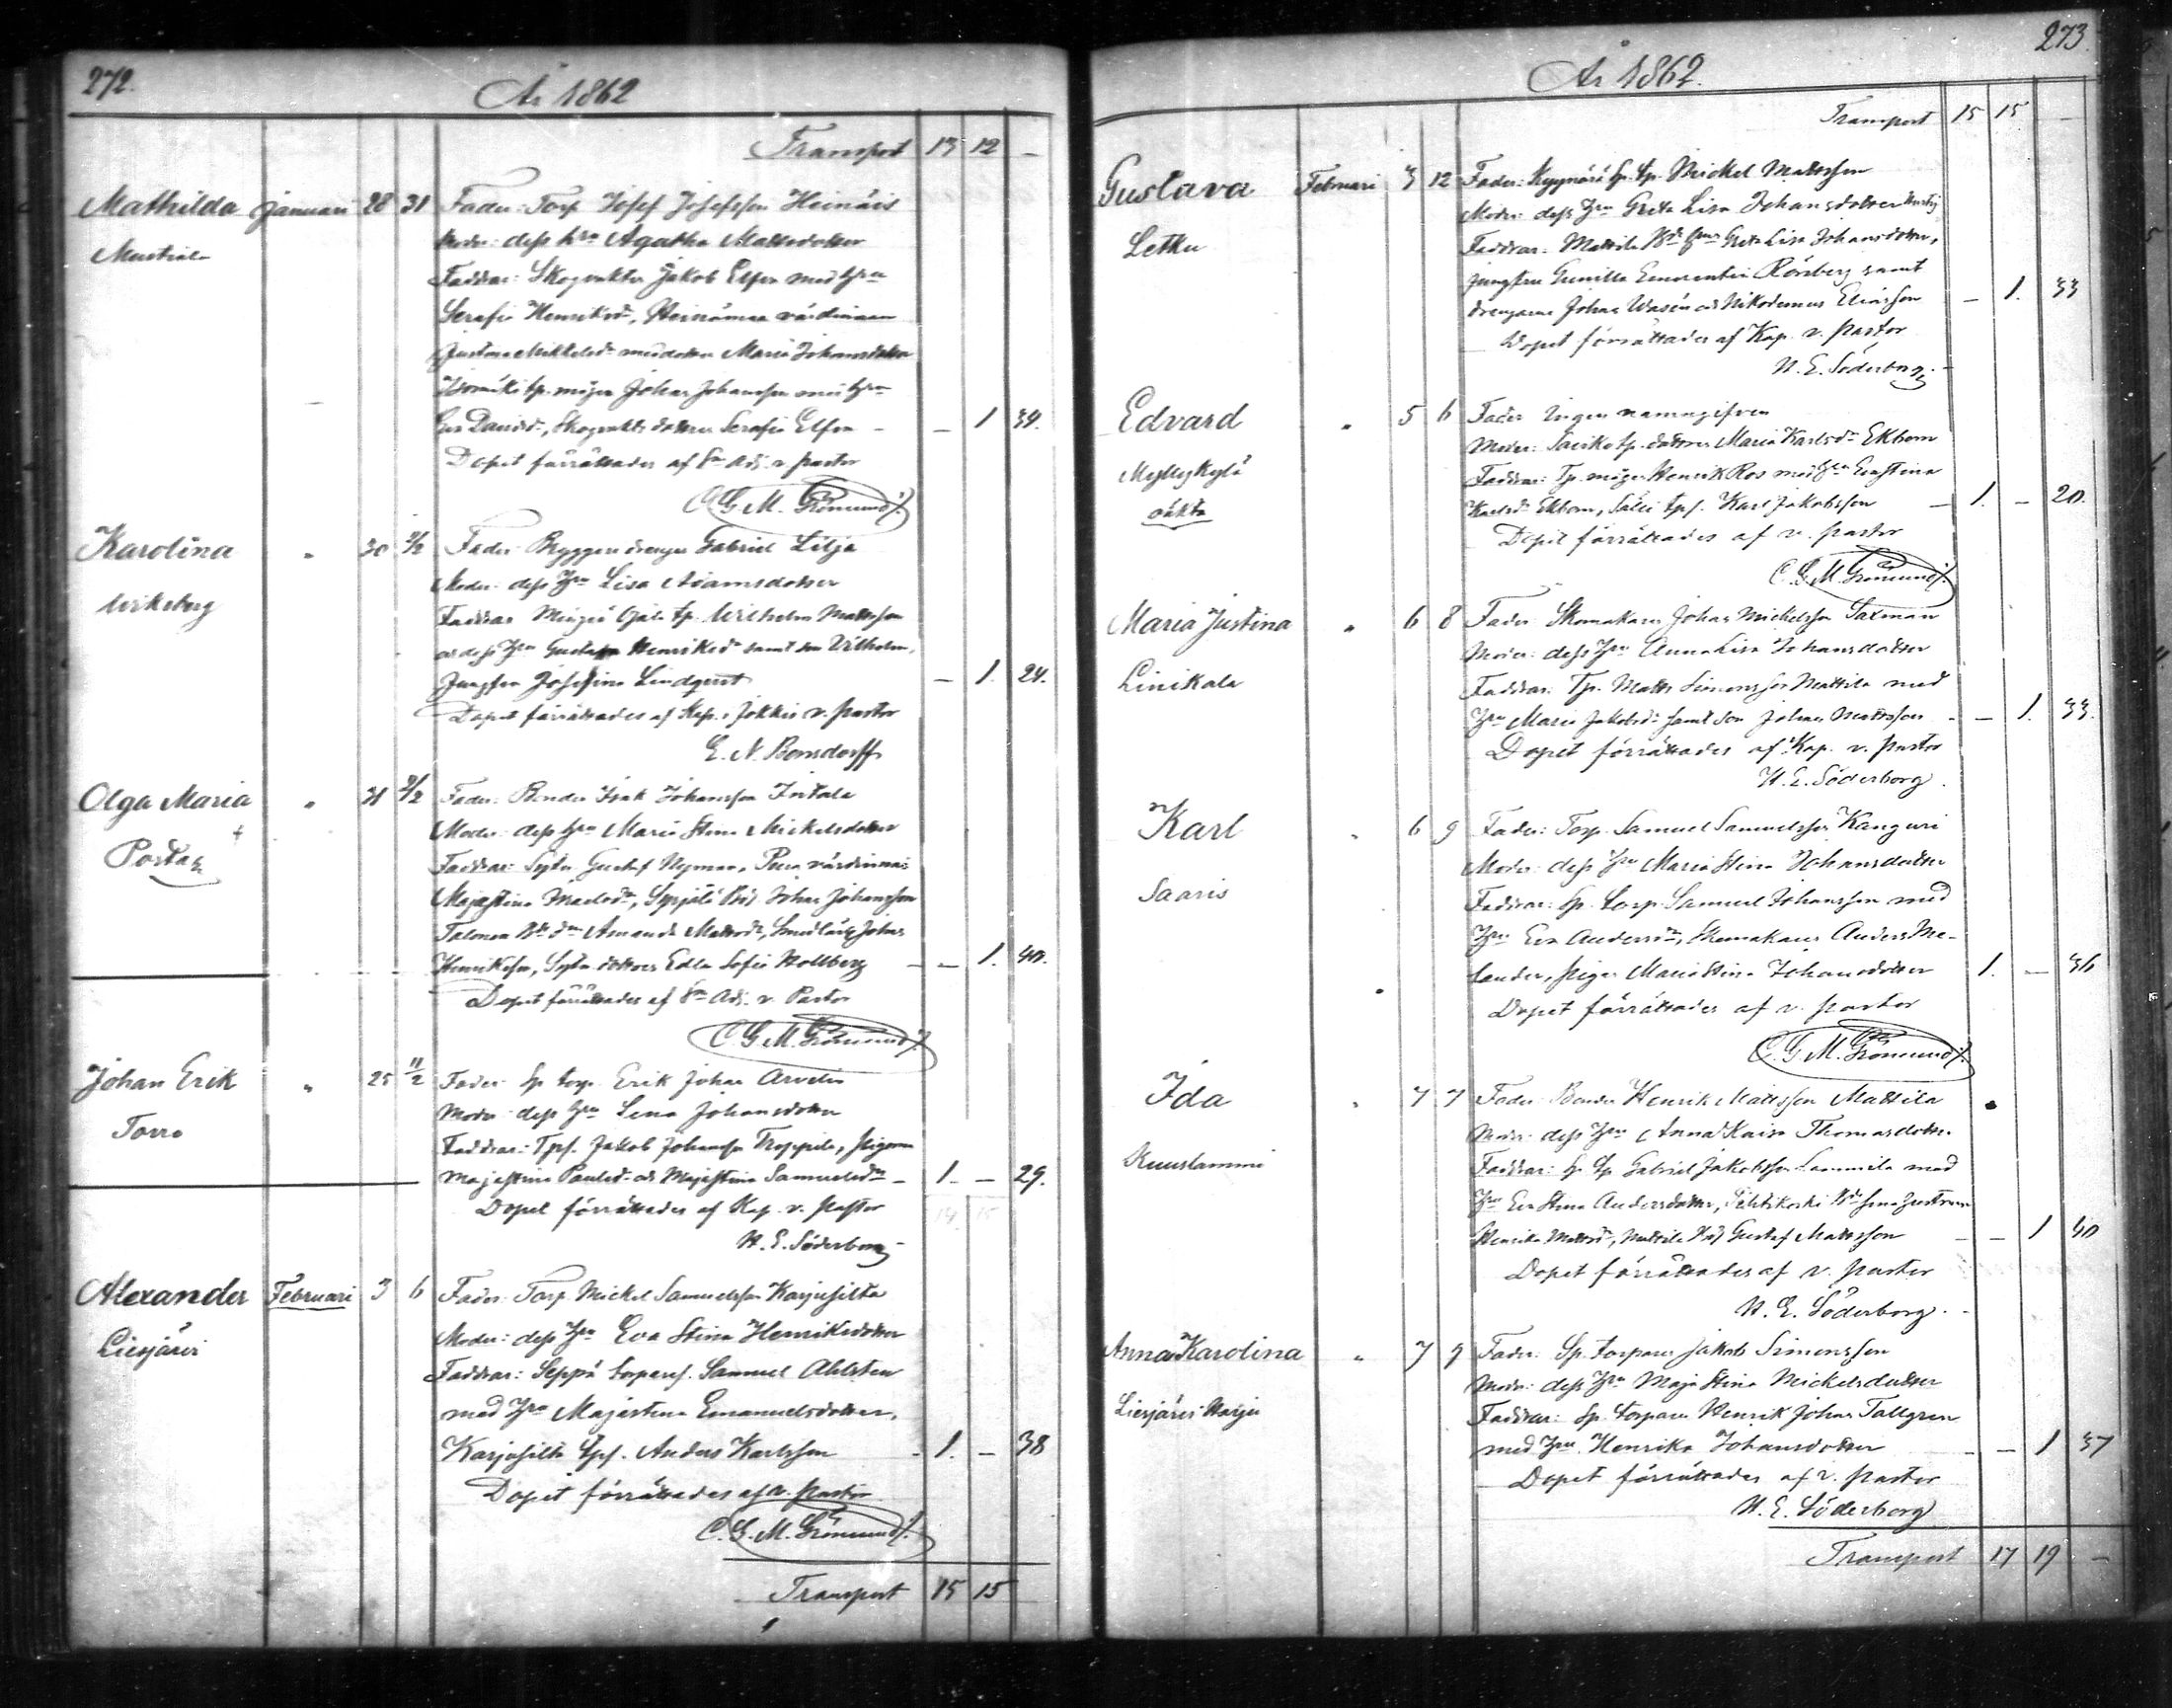 272.
År 1862
Transport 13 12 —
Mathilda Januari 28 31 Fader: Torp Josef Josefsson Heinäis
Mustiala
Moder: dess hru Agatha Mattsdotter
Faddrar: Skogvakter Jakob Elfen med hru
Serafia Henriksdr, Heinämaa värdinnan
Justina Mikkelsdr med dotter Maria Johansdotter
tp. mågen Johan Johansson med hru
Eva Davidsdr, Skogvakts dotter Serafia Elfen — 1 34.
Dopet förrättades af Sn Adj. v. pastor
C. G. M. Grönmund
Karolina " 30 2/2 Fader: Bryggeri drängen Gabriel Lilja
Wiksberg
Moder: dess Hru Lisa Adamsdotter
Faddrar Ojala tp. Wilhelm Mattsson
o. dess Hru Gustafva Henriksdr samt son Vilhelm,
Jungfru Josefina Lindqvist — 1. 24.
Dopet förrättades af Kap. i Jokkis v. pastor
E. N. Bonsdorff
Olga Maria " 31 2/2 Fader: Bonden Isak Johansson Intala
Portas
Moder: dess hru Maria Stina Mickelsdotter
Faddrar: Sytn. Gustaf Nyman, värdinnan
Majastina Isacksdr, Syrjälä Bds. Johan Johansson
Talonen Amanda Mattsdr, Johan
Henriksson, Sytn dotter Edla Sofia Hollberg — 1. 40.
Dopet förrättades af Sn Adj. v. Pastor
C. G. M. Grönmund
Johan Erik " 25 11/2 Fader: Sp torp. Erik Johan Arvelin
Torro
Moder: dess hru Lena Johansdotter
Faddrar: Tps. Jakob Johansson, pigorna
Majastina Paulsdr och Majastina Samuelsdr — 1 — 29.
Dopet förrättades af Kap. v. Pastor
H. E. Söderborg
Alexander Februari 3 6 Fader: Torp. Mickel Samuelsson Karjusilta
Liesjärvi
Moder: dess Hru Eva Stina Henriksdotter
Faddrar: Seppä torpares. Samuel Ahlsten
med Hru Majastina Emanuelsdotter,
Karjusilta tps. Anders Karlsson - 1. — 38
Dopet förrättades af v. pastor
C. G. M. Grönmund
Transport 15 15
273.
År 1862.
Transport 15 15 —
Gustava Februari 3 12 Fader: Kyynärä Sp. tp. Mickel Mattsson
Letku
Moder: dess Hru Greta Lisa Johansdotter
Faddrar: Mattila Greta Lisa Johansdotter,
Jungfrun Gunilla Emerentia Rönberg samt
drengarne Johan Wasén och Nikodemus Eliasson — 1. 33
Dopet förrättades af Kap. v. pastor
H. E. Söderborg.
Edvard " 5 6 Fader Ingen namngifven
Myllykylä
oäkta
Moder: tp. dotter Maria Karlsdr Ekbom
Faddrar: Tp. mågen Henrik Ros med hru Evastina
Karlsdr Ekbom, tps. Karl Jakobsson — 1. — 20.
Dopet förrättades af v. pastor
C. G. M. Grönmund
Maria Justina " 6 8 Fader Skomakare Johan Mickelsson Saxman
Linikala
Moder: dess Hru Anna Lisa Johansdotter
Faddrar: Tp. Matts Simonsson Mattila med
Hru Maria Jakobsdr samt son Johan Mattsson - — 1. 33.
Dopet förrättades af Kap. v. pastor
H. E. Söderborg.
Karl " 6 9 Fader: Torp. Samuel Samuelsson Kanguri
Saaris
Moder: dess Hru Maria Stina Johansdotter
Faddrar: Sp. torp. Samuel Johansson med
Hru Eva Andersdr, Skomakare Anders Me-
lander, pigan Maria Stina Johansdotter 1. — 36
Dopet förrättades af v. pastor
C. G. M. Grönmund
Ida " 7 7 Fader Bonden Henrik Mattsson Mattila
Kuuslammi
Moder: dess Hru Anna Kaisa Thomasdotter
Faddrar: Sp. tp Gabriel Jakobsson Lammila med
Hru Eva Stina Andersdotter,
Henrika Mattsdr, Mattila Bds Gustaf Mattsson — 1 40
Dopet förrättades af v. pastor
H. E. Söderborg.
Anna Karolina " 7 9 Fader: Sp. torparen Jakob Simonsson
Liesjärvi Harju
Moder: dess Hru Maja Stina Mickelsdotter
Faddrar: Sp. torparen Henrik Johan Tallgren
med Hru Henrika Johansdotter — 1 37
Dopet förrättades af v. pastor
H. E. Söderborg
Transport 17 19 —